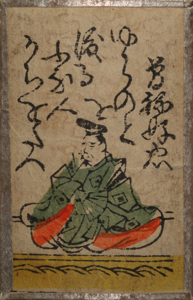 曽祢好忠
ゆらのと
を
渡る
ふな人
かちをたへ